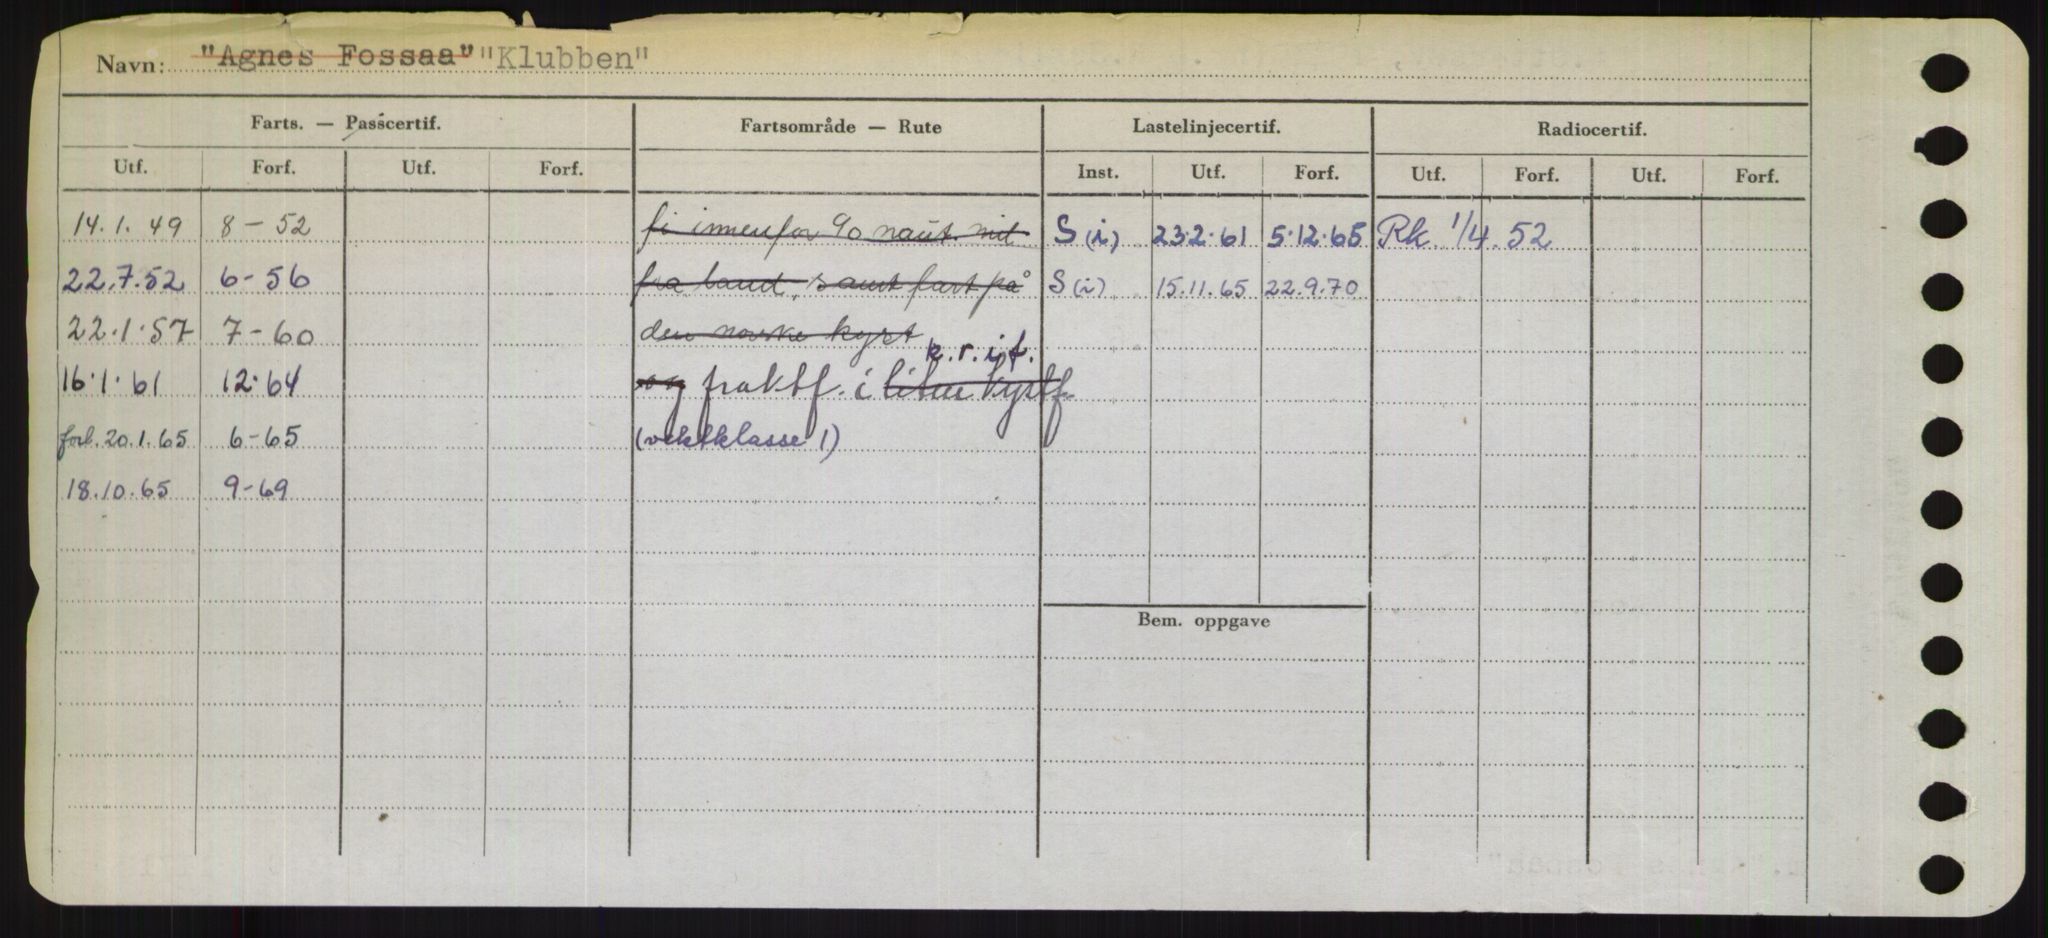 Navn: "Agnes Fossaa" "Klubben"
Farts. — Passcertif. Fartsområde — Rute Lastelinjecertif. Radiocertif.
Utf. Forf. Utf. Forf. Inst. Utf. Forf. Utf. Forf. Utf. Forf.
14.1.49 8-52 fi innenfor 90 naut. mil S (i) 23.2.61 5.12.65 Rk. 1/4.52
22.7.52 6-56 fra land, samt fart på S (i) 15.11.65 22.9.70
22.1.57 7-60 den norske kyst
k.r.i.f.
16.1.61 12.64 og fraktf. i liten kystf.
forl. 20.1.65 6-65 (vektklasse 1)
18.10.65 9-69
Bem. oppgave